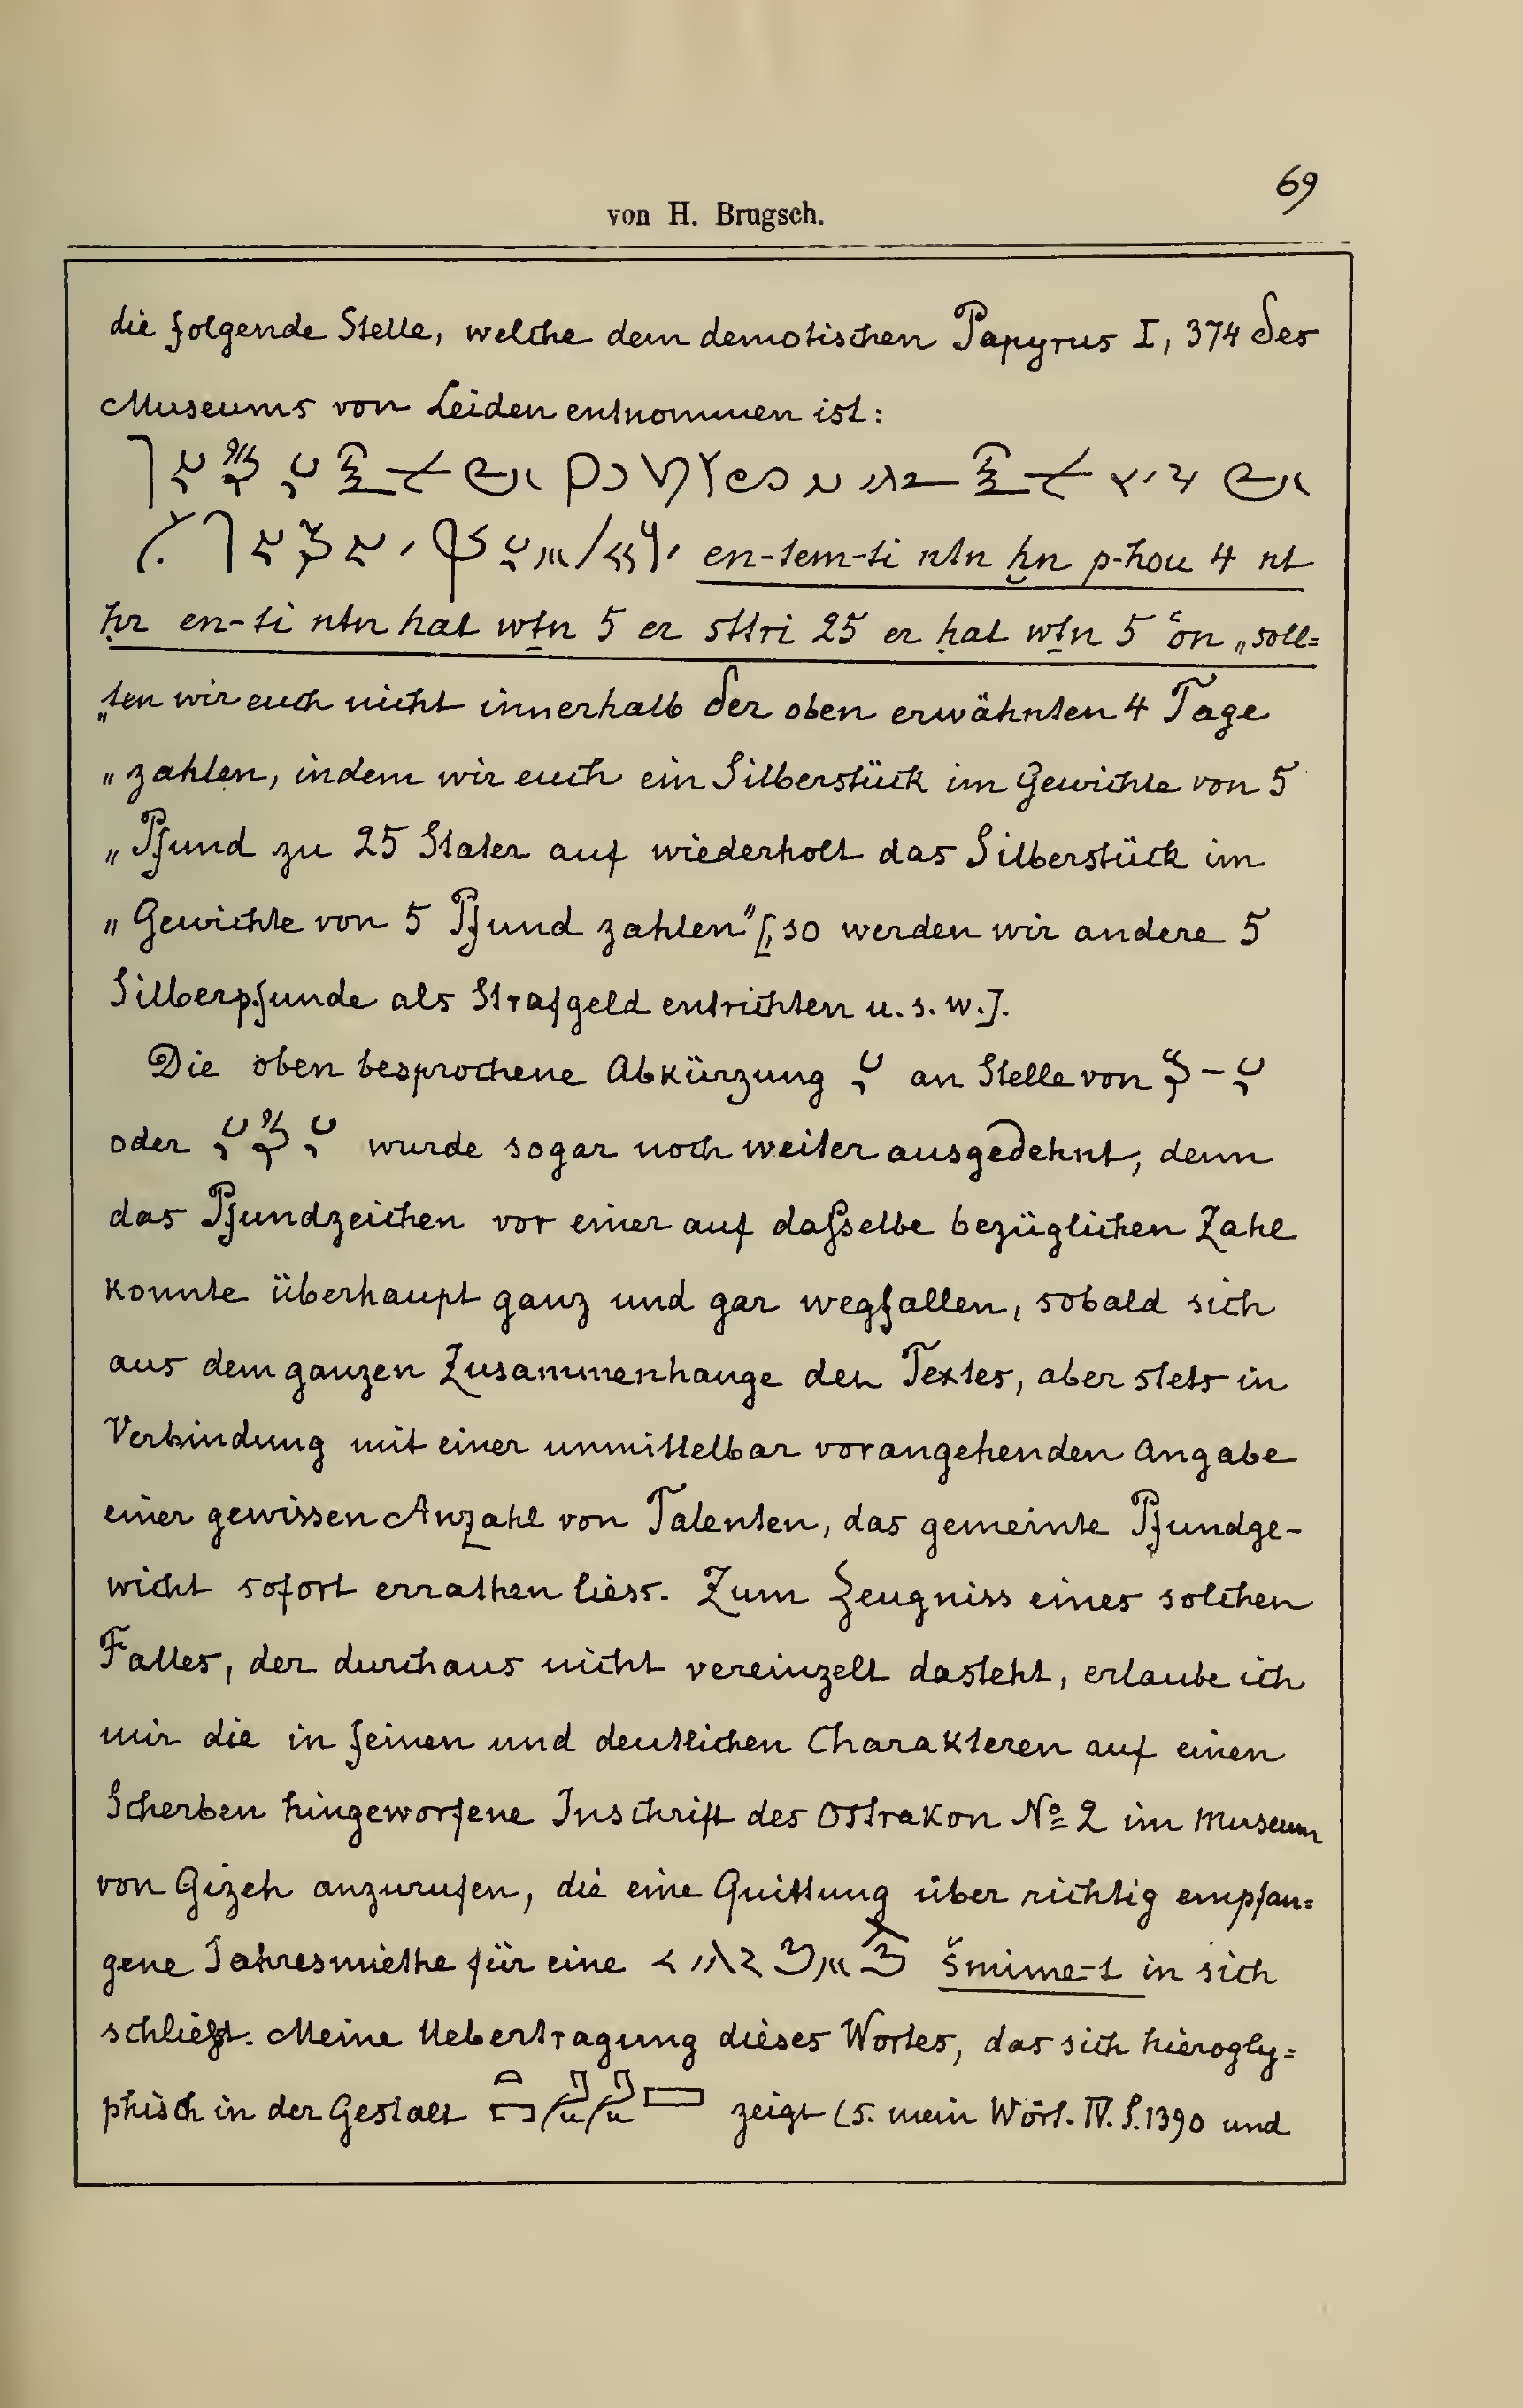 69
von H. Brugsch.
die folgende Stelle, welche dem demotischen Papyrus I, 374 des
Museums von Leiden entnommen ist:
en-tem-ti ntn ḫn p-hou 4 nt
ḥr en-ti ntn hat wṯn 5 er sttri 25 er ḥat wṯn 5 ʿon „soll=
„ten wir euch nicht innerhalb der oben erwähnten 4 Tage
„zahlen, indem wir euch ein Silberstück im Gewichte von 5
„Pfund zu 25 Stater auf wiederholt das Silberstück im
„Gewichte von 5 Pfund zahlen" [, so werden wir andere 5
Silberpfunde als Strafgeld entrichten u. s. w.].
Die oben besprochene Abkürzung an Stelle von
oder wurde sogar noch weiter ausgedehnt, denn
das Pfundzeichen vor einer auf daſselbe bezüglichen Zahl
konnte überhaupt ganz und gar wegfallen, sobald sich
aus dem ganzen Zusammenhange des Textes, aber stets in
Verbindung mit einer unmittelbar vorangehenden Angabe
einer gewissen Anzahl von Talenten, das gemeinte Pfundge-
wicht sofort errathen liess. Zum Zeugniss eines solchen
Falles, der durchaus nicht vereinzelt dasteht, erlaube ich
mir die in feinen und deutlichen Charakteren auf einen
Scherben hingeworfene Inschrift des Ostrakon Nº 2 im Museum
von Gizeh anzurufen, die eine Quittung über richtig empfan=
gene Jahresmiethe für eine šmime-t in sich
schließt. Meine Uebertragung dieses Wortes, das sich hierogly=
phisch in der Gestalt zeigt (s. mein Wört. IV. S. 1390 und